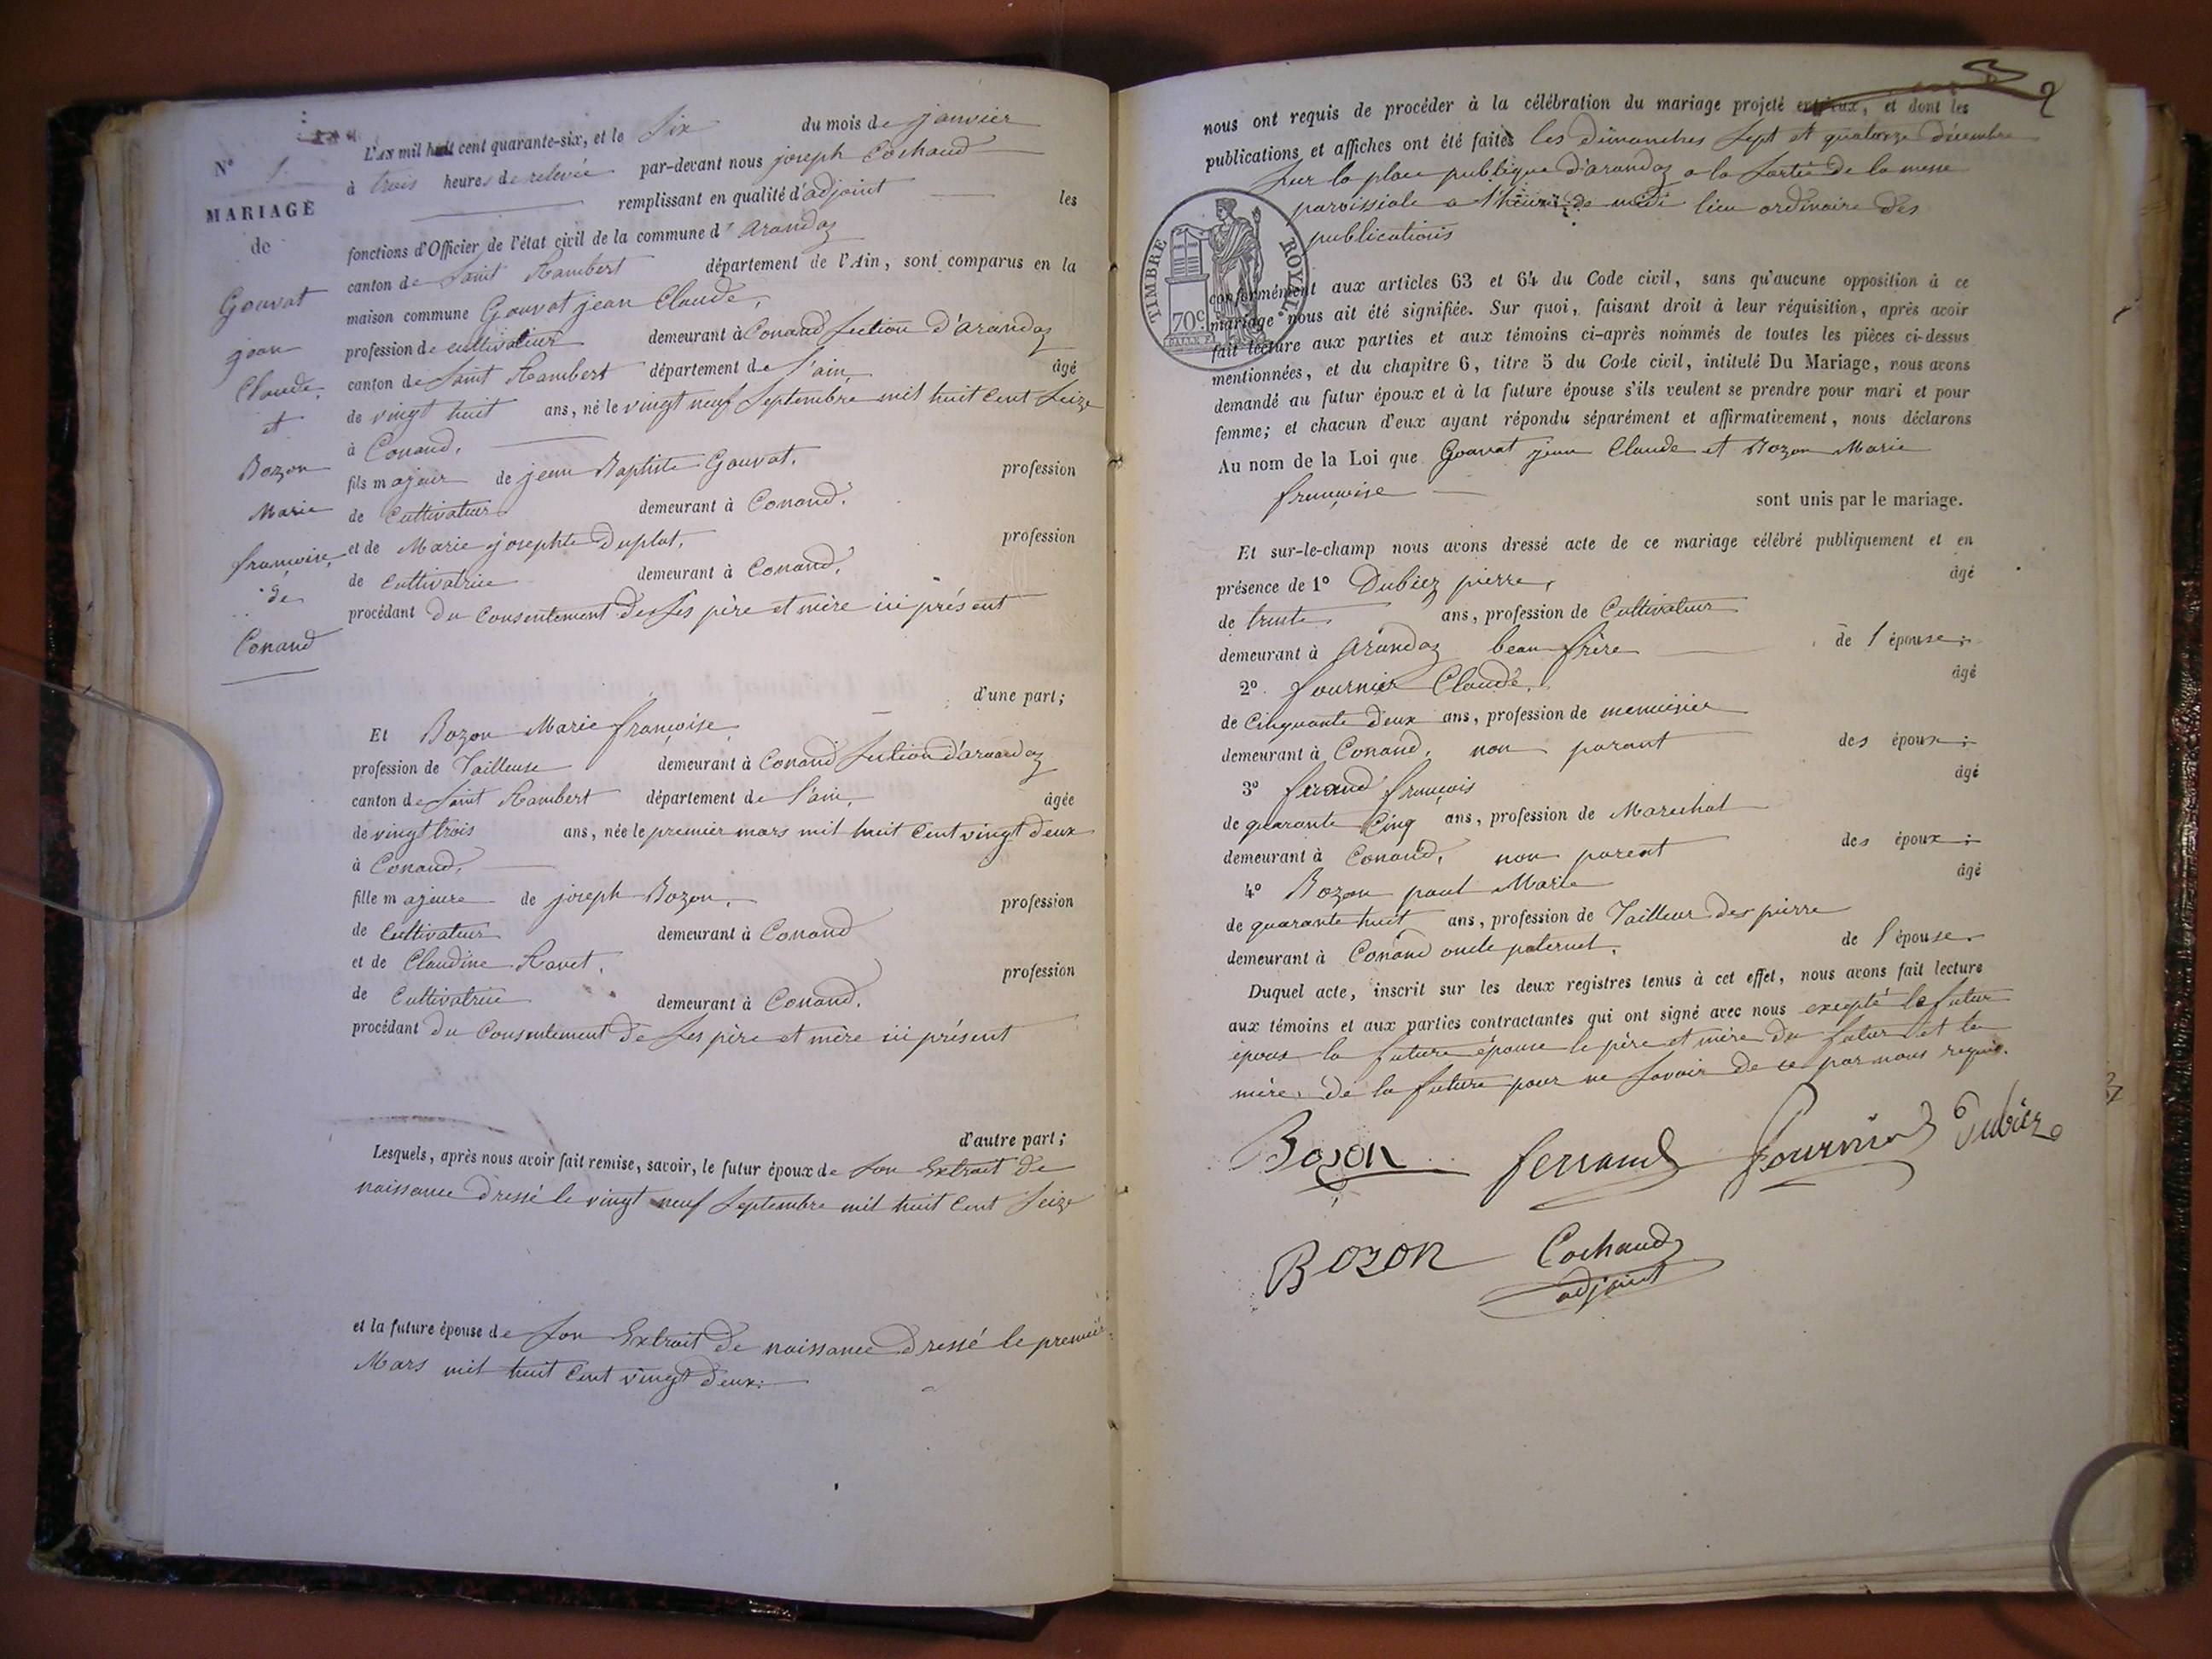 N° 1.
MARIAGE
de
Gouvat
jean
Claude,
et
Bozon
Marie
françoise,
de
Conand
L'AN mil huit cent quarante-six, et le Six du mois de janvier
à trois heures de relevée par-devant nous joseph Cochaud
remplissant en qualité d'adjoint les
fonctions d'Officier de l'état civil de la commune d' arandaz
canton de Saint Rambert département de l'Ain, sont comparus en la
maison commune Gouvat jean Claude,
profession de cultivateur demeurant à Conand section d'arandaz
canton de Saint Rambert département de l'ain âgé
de vingt huit ans, né le vingt neuf Septembre mil huit Cent Seize
à Conand.
fils majeur de jean Baptiste Gouvat. profession
de Cultivateur demeurant à Conand.
et de Marie josephte Duplat, profession
de Cultivatrice demeurant à Conand.
procédant du Consentement de Ses père et mère ici présent
d'une part;
Et Bozon Marie françoise
profession de Tailleuse demeurant à Conand Section d'arandaz
canton de Saint Rambert département de l'ain, âgée
de vingt trois ans, née le premier mars mil huit Cent vingt deux
à Conand.
fille majeure de joseph Bozon, profession
de Cultivateur demeurant à Conand
et de Claudine Ravet, profession
de Cultivatrice demeurant à Conand.
procédant du Consentement de Ses père et mère ici présent
d'autre part;
Lesquels, après nous avoir fait remise, savoir, le futur époux de Son Extrait de
naissance Dressé le vingt neuf Septembre mil huit Cent Seize
et la future épouse de Son Extrait de naissance Dressé le premier
Mars mil huit Cent vingt deux.
2
nous ont requis de procéder à la célébration du mariage projeté entr'eux, et dont les
publications et affiches ont été faites les dimanches Sept et quatorze décembre
Sur la place publique d'arandaz a la Sortie de la messe
paroissiale a l'heure de midi lieu ordinaire des
publications
TIMBRE ROYAL
70c
conformément aux articles 63 et 64 du Code civil, sans qu'aucune opposition à ce
mariage nous ait été signifiée. Sur quoi, faisant droit à leur réquisition, après avoir
fait lecture aux parties et aux témoins ci-après nommés de toutes les pièces ci-dessus
mentionnées, et du chapitre 6, titre 5 du Code civil, intitulé Du Mariage, nous avons
demandé au futur époux et à la future épouse s'ils veulent se prendre pour mari et pour
femme; et chacun d'eux ayant répondu séparément et affirmativement, nous déclarons
Au nom de la Loi que Gouvat jean Claude et Bozon Marie
françoise sont unis par le mariage.
Et sur-le-champ nous avons dressé acte de ce mariage célébré publiquement et en
présence de 1° Dubiez pierre, âgé
de trente ans, profession de Cultivateur
demeurant à arandaz beau frère de l'épouse;
2° fournier Claude, âgé
de Cinquante deux ans, profession de menuisier
demeurant à Conand, non parant des époux;
3° ferand françois âgé
de quarante Cinq ans, profession de Marechal
demeurant à Conand, non parent des époux;
4° Bozon paul Marie âgé
de quarante huit ans, profession de Tailleur des pierre
demeurant à Conand oncle paternel, de l'épouse.
Duquel acte, inscrit sur les deux registres tenus à cet effet, nous avons fait lecture
aux témoins et aux parties contractantes qui ont signé avec nous excepté le futur
epoux la future épouse le père et mère du futur et la
mère de la future pour ne Savoir de ce par nous requis.
Bozon ferrand fournier Dubiez
Bozon Cochaud
adjoint